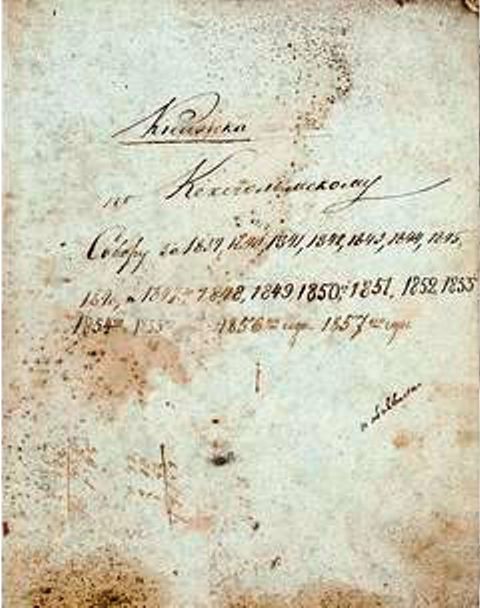 Книжка
по Кексгольмскому
Собору за 1839, 1840, 1841, 1842, 1843, 1844, 1845,
1846, и 1847 1848, 1849 1850 1851, 1852, 1853
1854 1855 1856 года 1857 года